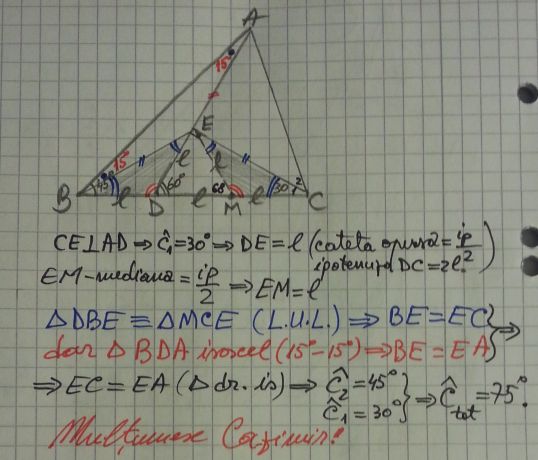 A
15°
E
15°
l
l
45°
60°
60
30
1
2
B
l
D
l
M
l
C
CE⊥AD ⇒ Ĉ₁=30° ⇒ DE=l (cateta opusă=ip/2
ipotenuza DC=2l.)
EM-mediana=ip/2 ⇒ EM=l
ΔDBE ≡ ΔMCE (L.U.L.) ⇒ BE=EC} ⇒
dar ΔBDA isoscel (15°-15°) ⇒ BE=EA}
⇒ EC=EA (Δ dr. is) ⇒ Ĉ₂=45°
Ĉ₁=30°} ⇒ Ĉtot=75°.
Mulțumesc Cazimir!